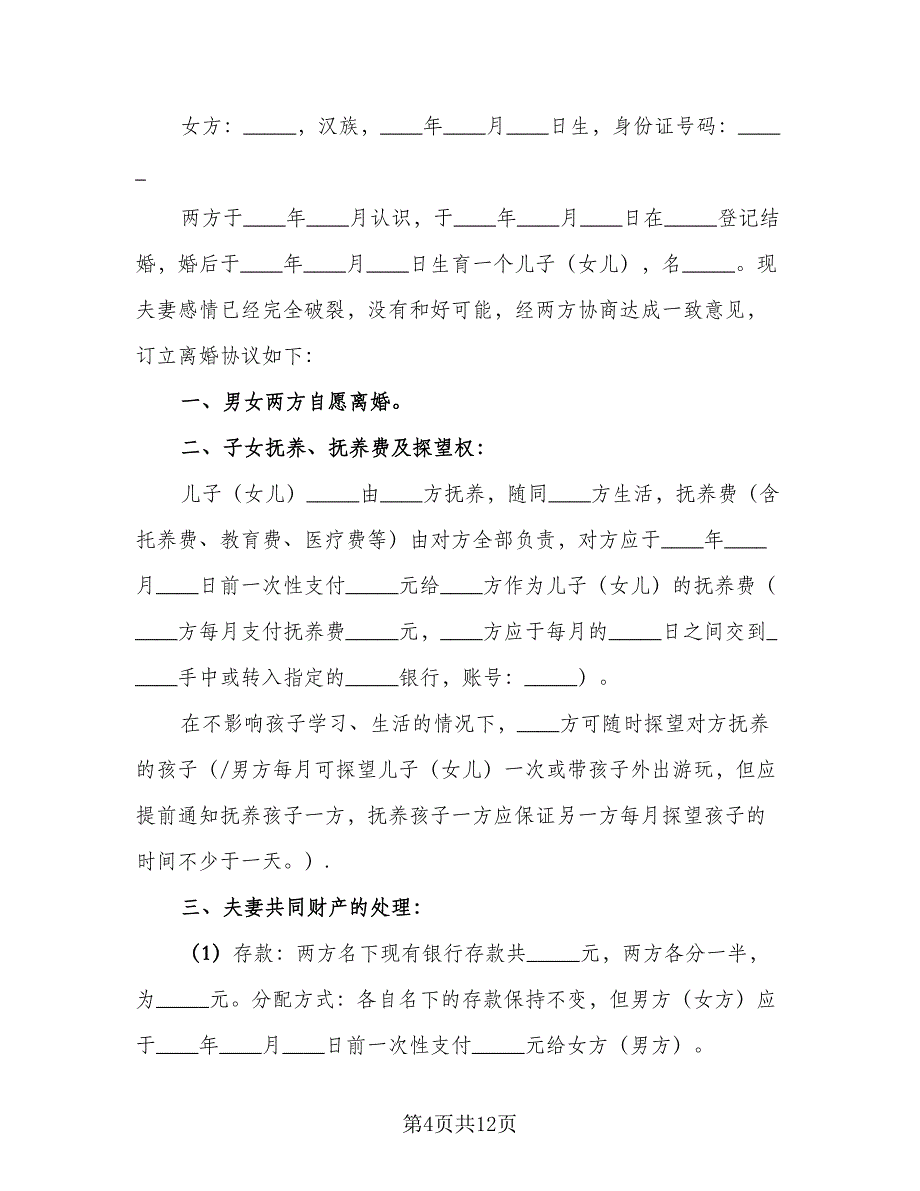 女方：_____，汉族，____年____月____日生，身份证号码：____
_
两方于____年____月认识，于____年____月____日在_____登记结
婚，婚后于____年____月____日生育一个儿子（女儿），名_____。现
夫妻感情已经完全破裂，没有和好可能，经两方协商达成一致意见，
订立离婚协议如下：
一、男女两方自愿离婚。
二、子女抚养、抚养费及探望权：
儿子（女儿）_____由____方抚养，随同____方生活，抚养费（含
托养费、教育费、医疗费等）由对方全部负责，对方应于____年____
月____日前一次性支付_____元给____方作为儿子（女儿）的抚养费（
____方每月支付抚养费_____元，____方应于每月的_____日之间交到_
____手中或转入指定的_____银行，账号：_____）。
在不影响孩子学习、生活的情况下，____方可随时探望对方抚养
的孩子（/男方每月可探望儿子（女儿）一次或带孩子外出游玩，但应
提前通知抚养孩子一方，抚养孩子一方应保证另一方每月探望孩子的
时间不少于一天。）.
三、夫妻共同财产的处理：
（1）存款：两方名下现有银行存款共_____元，两方各分一半，
为_____元。分配方式：各自名下的存款保持不变，但男方（女方）应
于____年____月____日前一次性支付_____元给女方（男方）。
第4页共12页